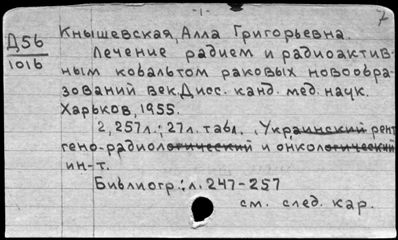 -1-
7
Д56
101б
Кнышевская, Алла Григорьевна.
Лечение радием и радиоактив-
ным кобальтом раковых новообра-
зований век. Дисс. канд. мед. наук.
Харьков, 1955.
2, 257л.; 27л. табл. Украинский рент
гено-радиологический и онкологический
ин-т.
Библиогр.: л. 247-257
см. след. кар.